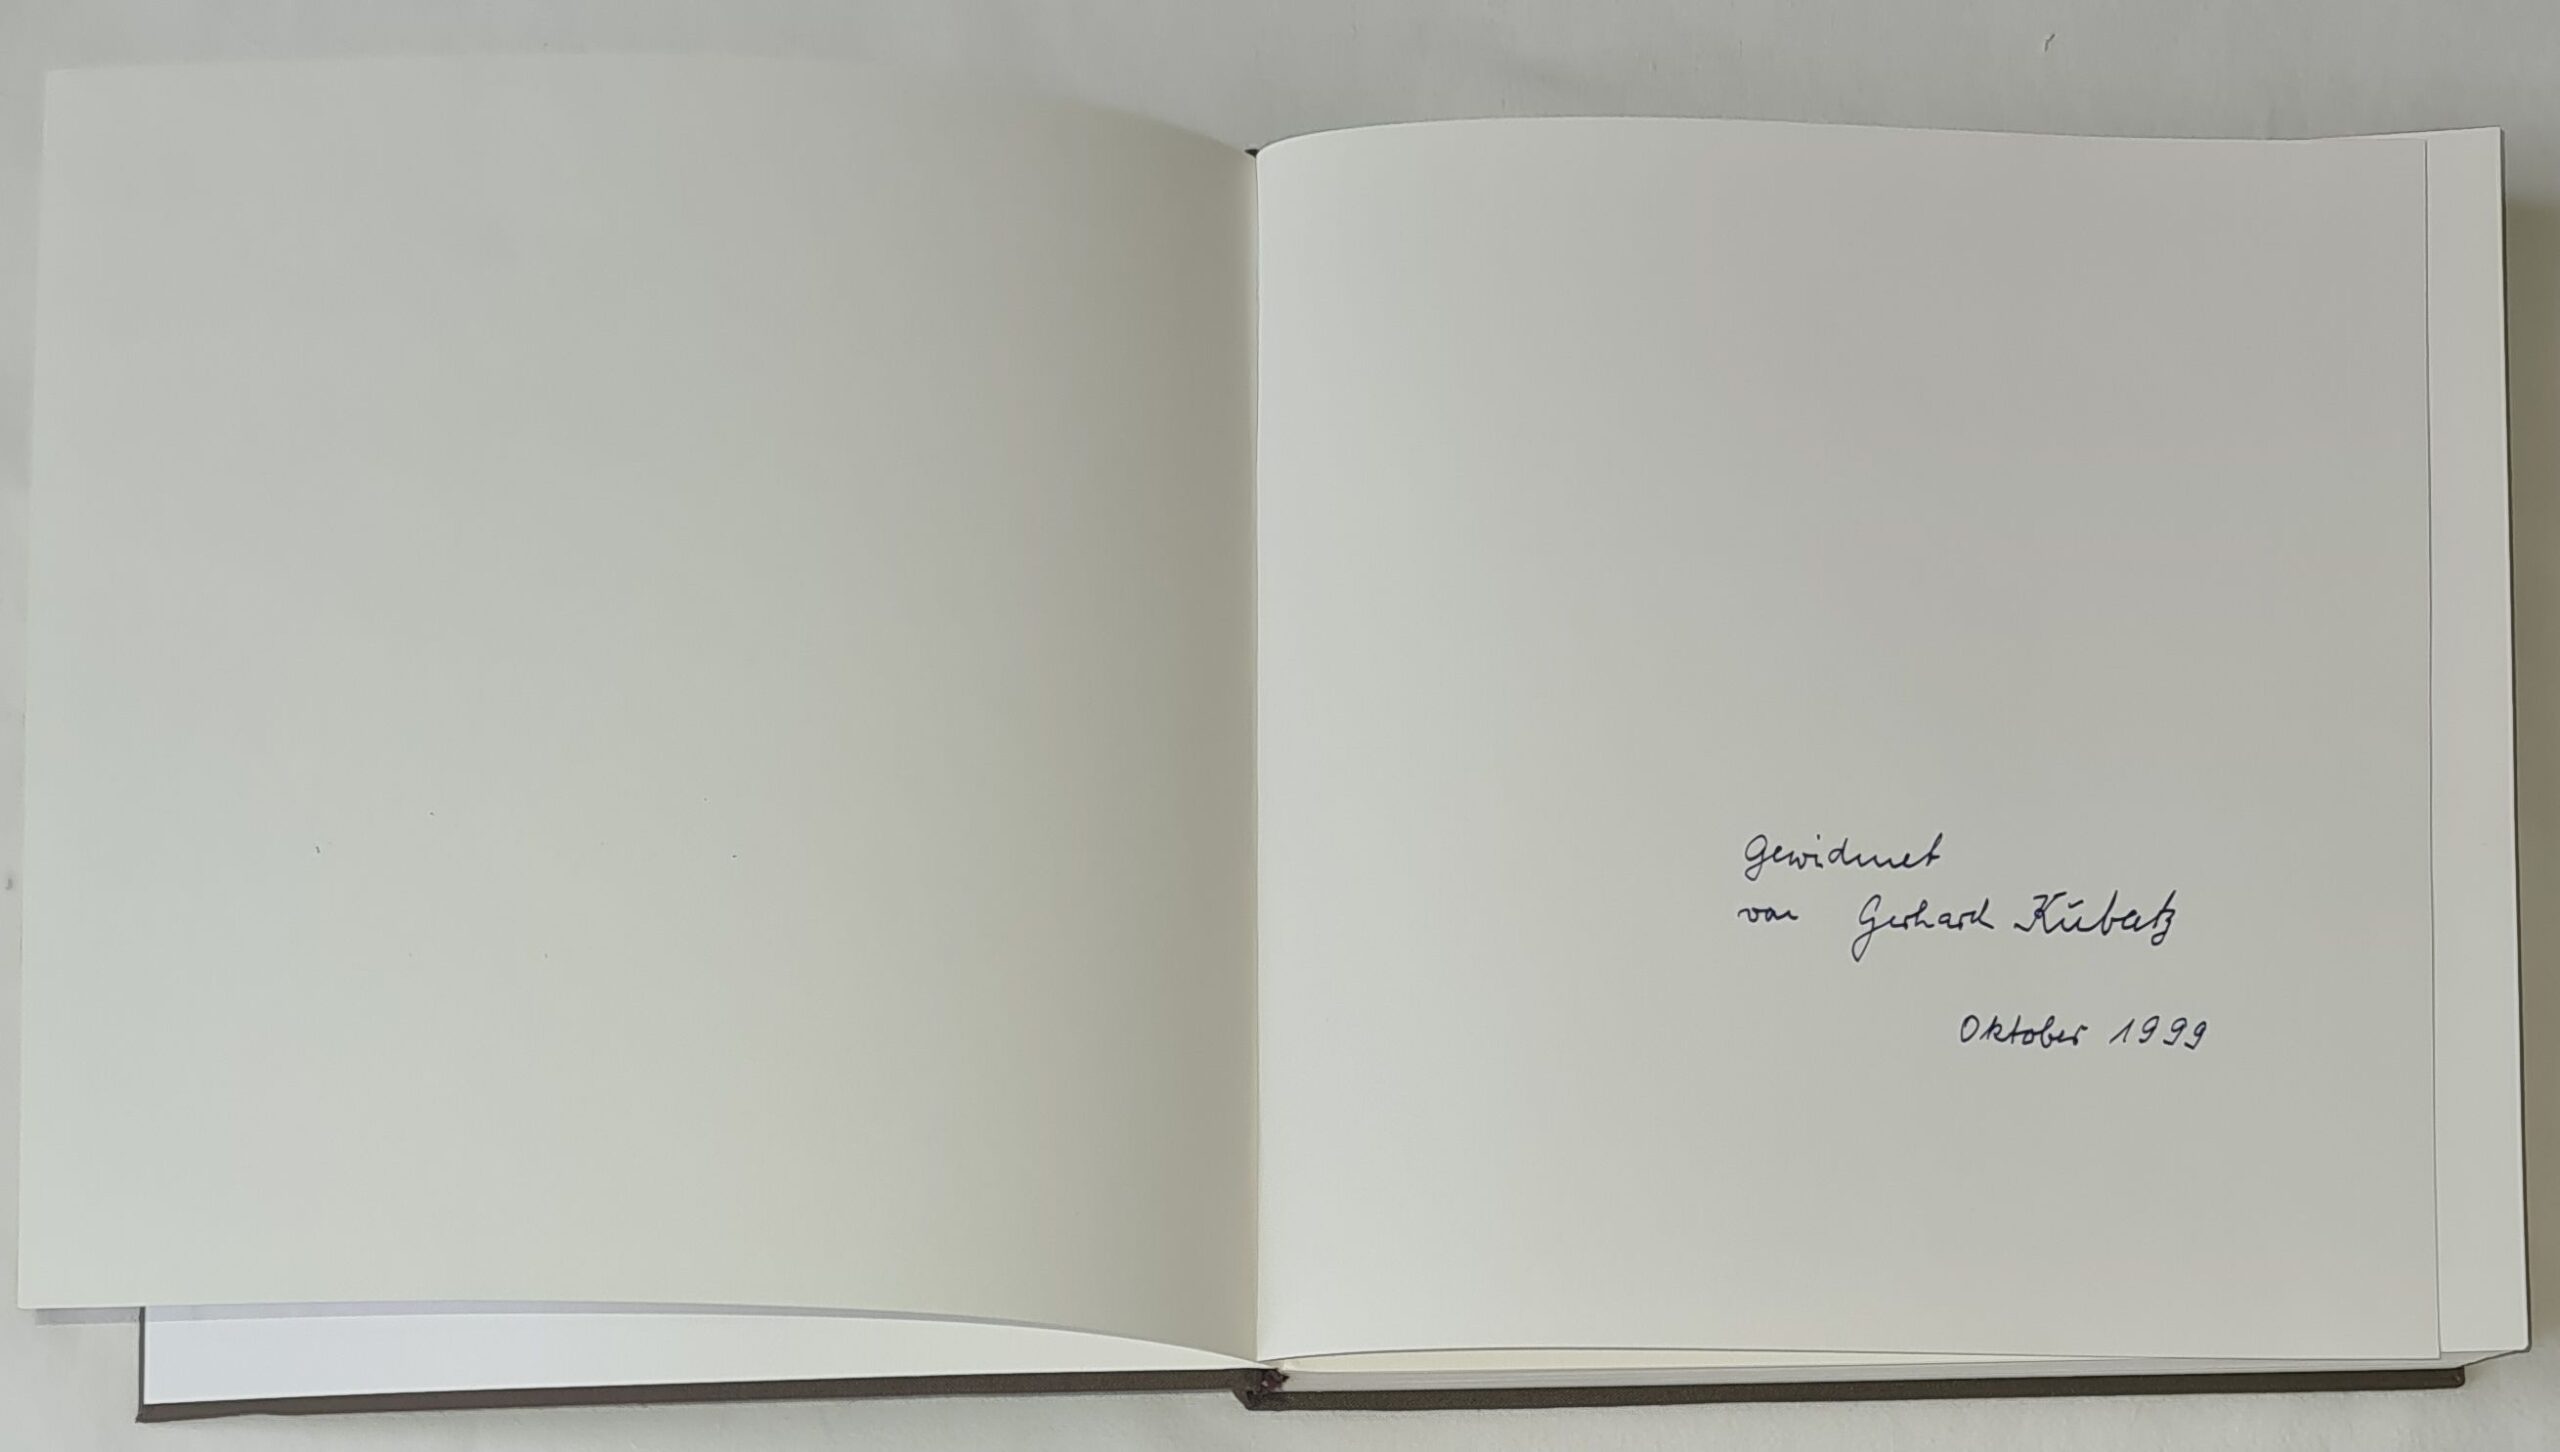 Gewidmet
von Gerhard Kubatz
Oktober 1999